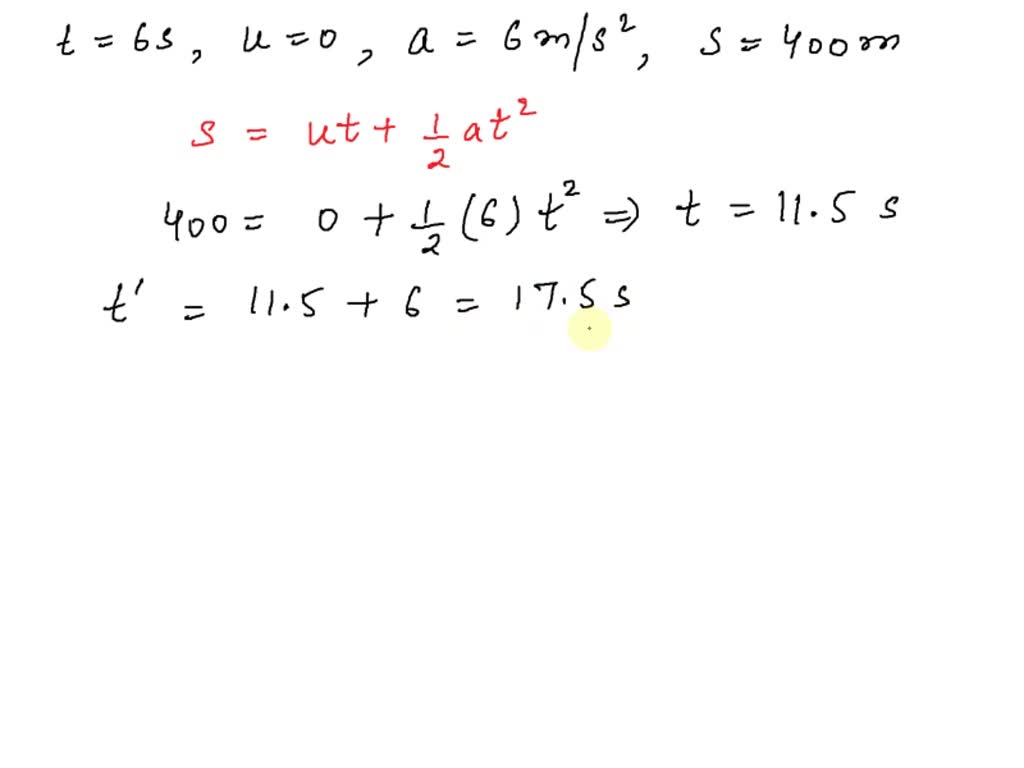 t = 6s, u = 0, a = 6 m/s², s = 400 m
s = ut + 1/2 at²
400 = 0 + 1/2 (6) t² ⇒ t = 11.5 s
t' = 11.5 + 6 = 17.5 s